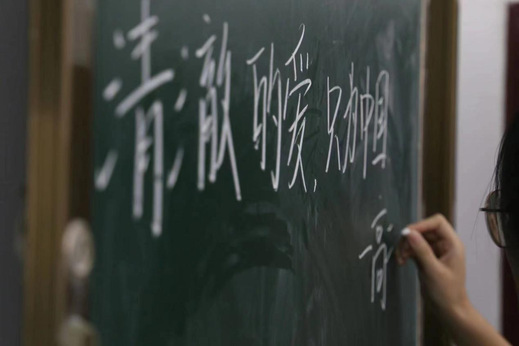 清澈的爱,只为中国
高